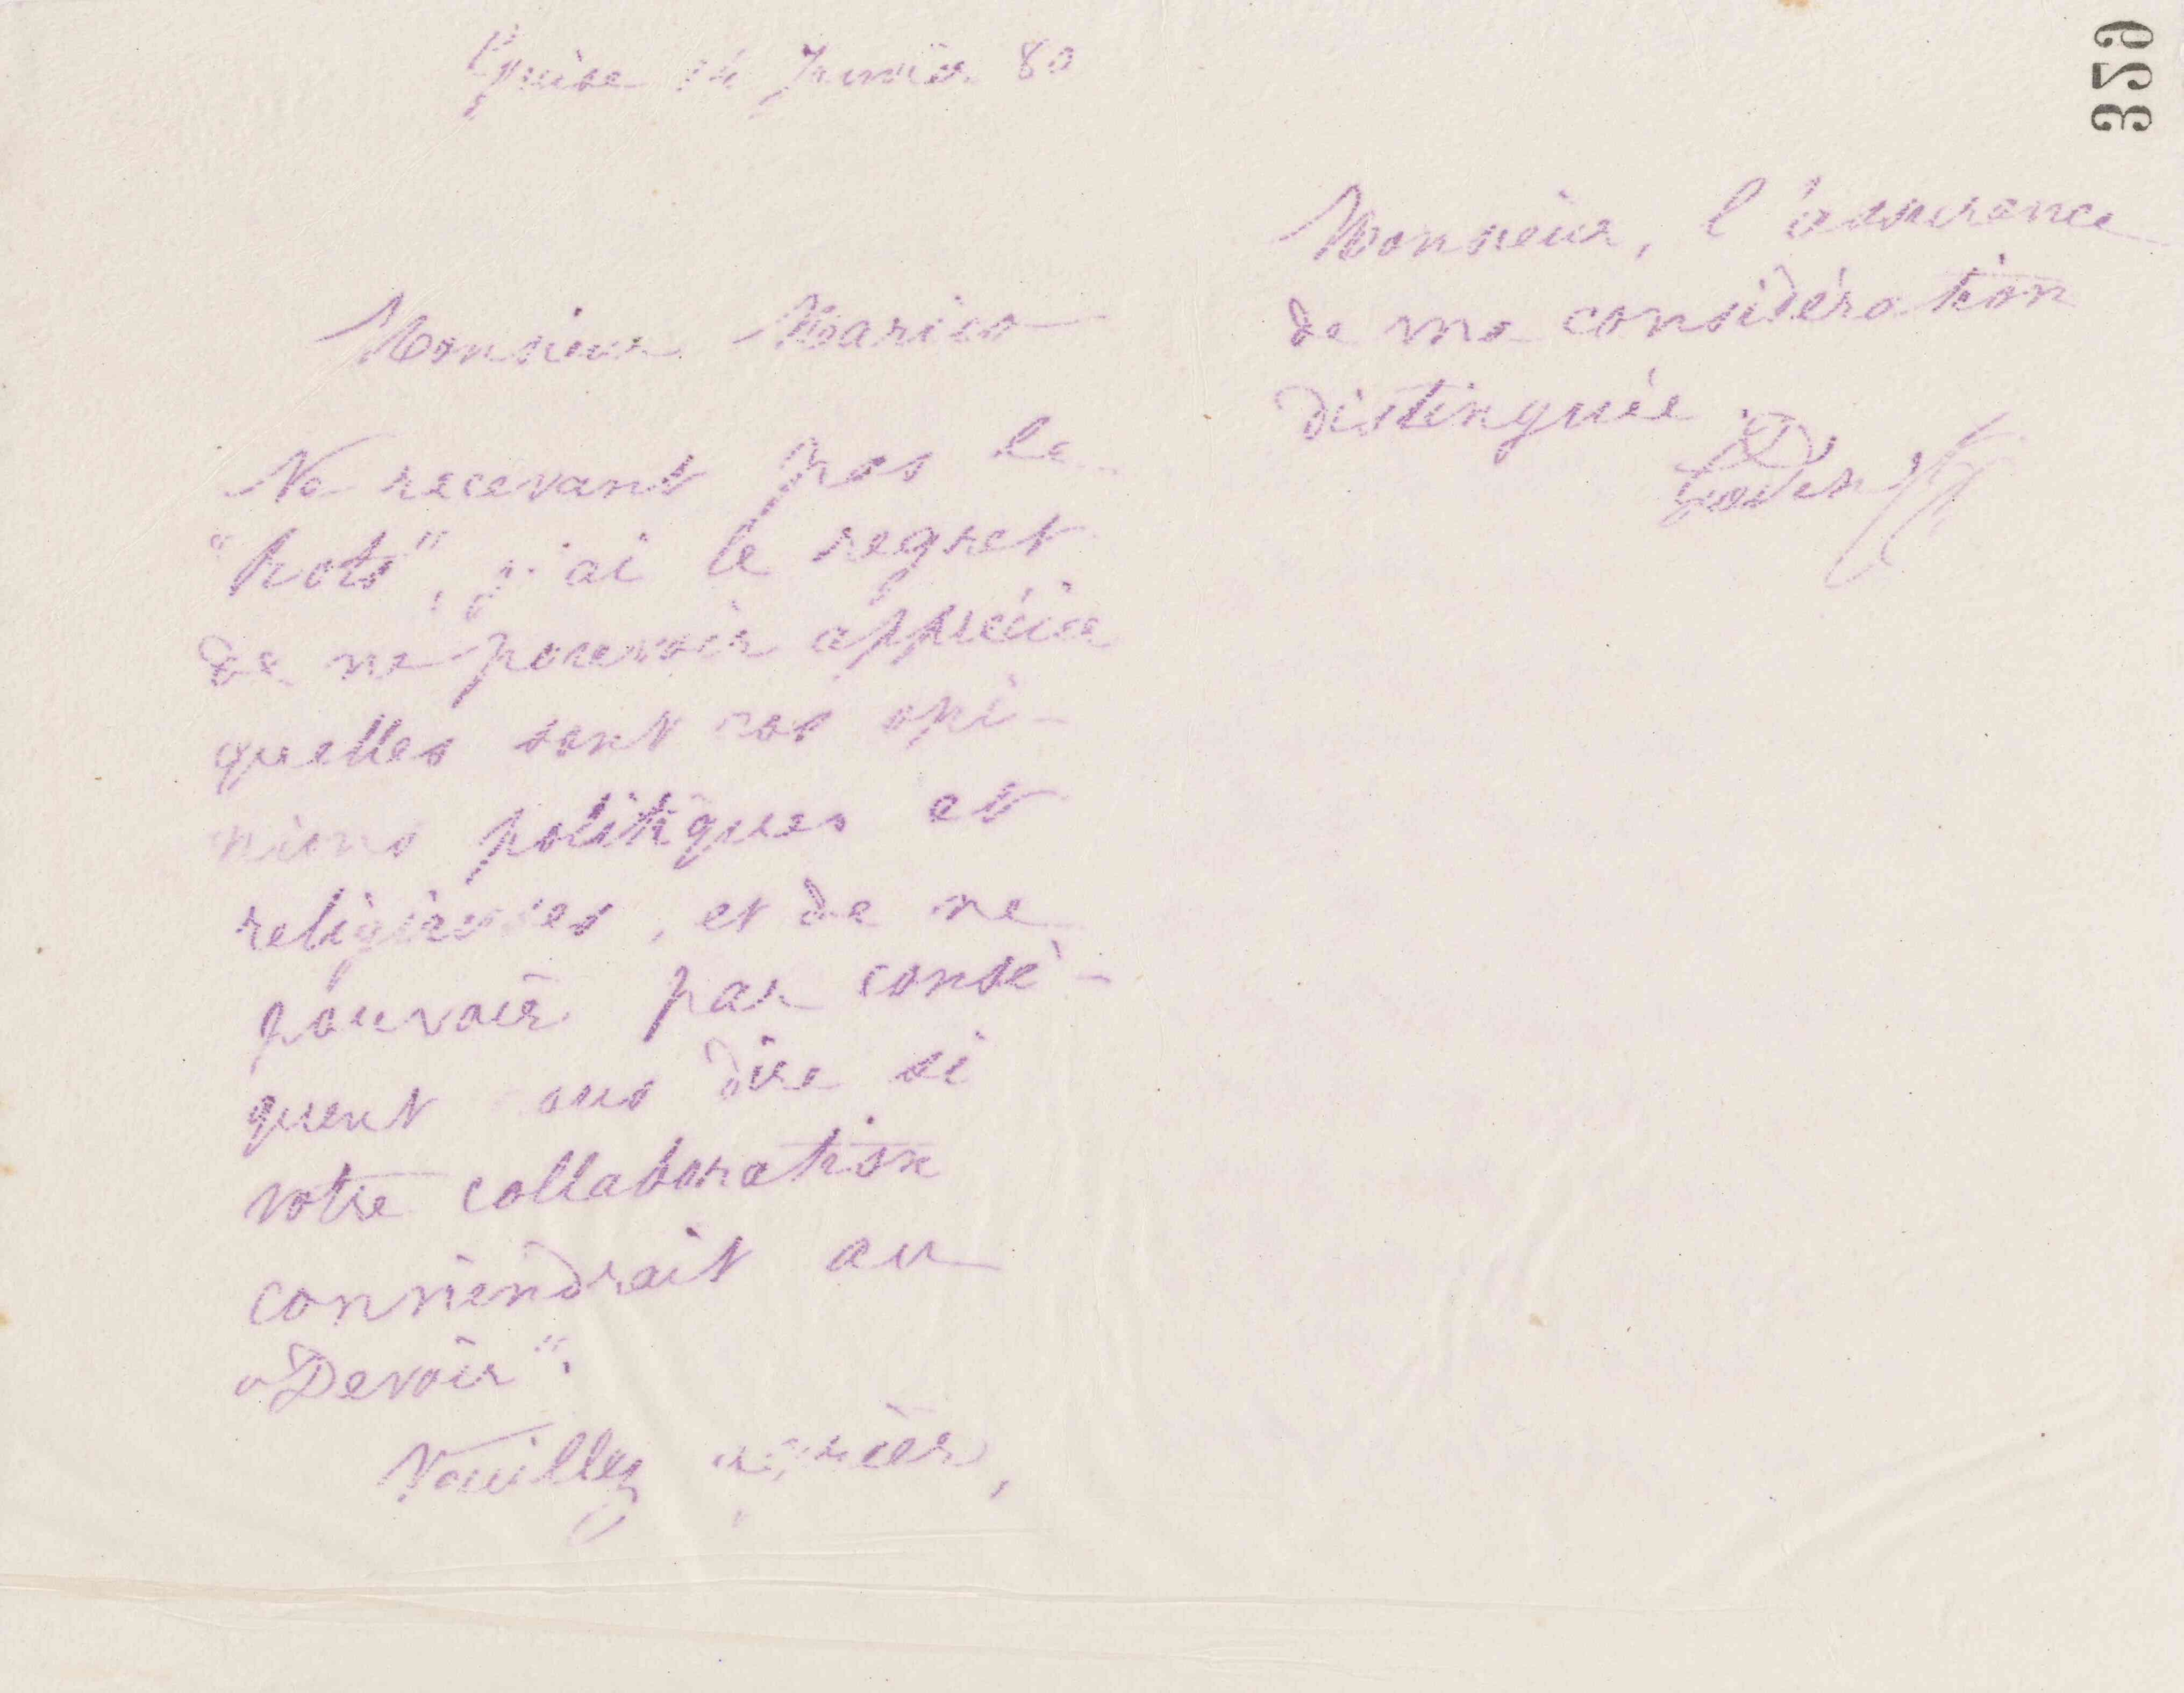 Guise 14 Janvier 80
Monsieur Marico
Ne recevant pas le
"hots", j'ai le regret
de ne pouvoir apprécier
quelles sont vos opi-
nions politiques et
religieuses, et de ne
pouvoir par consé-
quent vous dire si
votre collaboration
conviendrait au
"Devoir".
Veuillez agréer,
Monsieur, l'assurance
de ma considération
distinguée
Godin
359